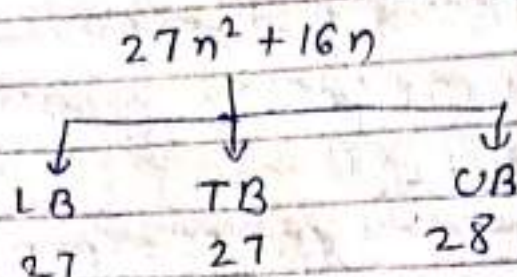 27n² + 16n
LB TB UB
27 27 28